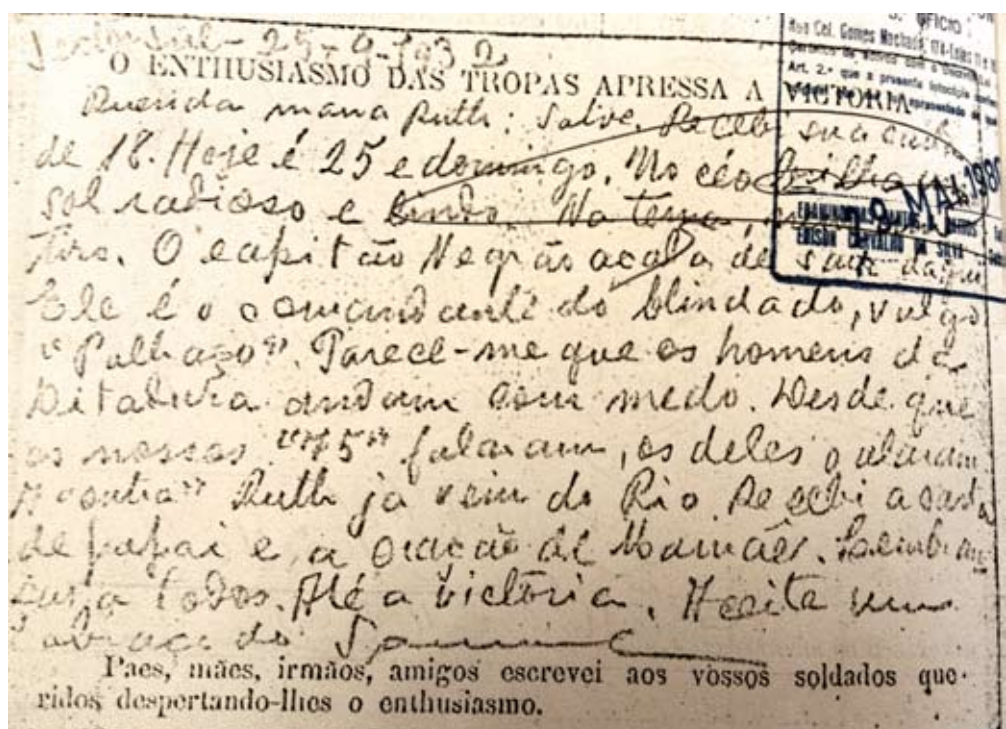 25-9-1932
O ENTHUSIASMO DAS TROPAS APRESSA A VICTORIA
Querida mana Ruth: Salve. Recebi sua carta
de 18. Hoje é 25 e domingo. No céo brilha
sol radioso e lindo. Na terra,
tiro. O capitão Negrão acaba de sair daqui
Ele é o comandante do blindado, vulgo
"Palhaço". Parece-me que os homens da
Ditadura andam com medo. Desde que
os nossos "75" falaram, os deles calaram
Ruth já veiu do Rio. Recebi a carta
de papai e, a oração de Mamãe. Lembran
ças a todos. Até a victoria. Aceita um
abraço do
Paes, mães, irmãos, amigos escrevei aos vossos soldados que-
ridos despertando-lhes o enthusiasmo.
OFICIO
Rua Cel. Gomes Machado,
Art. 2.º que a presente
MAI 198
EDISON CARVALHO DA SILVA